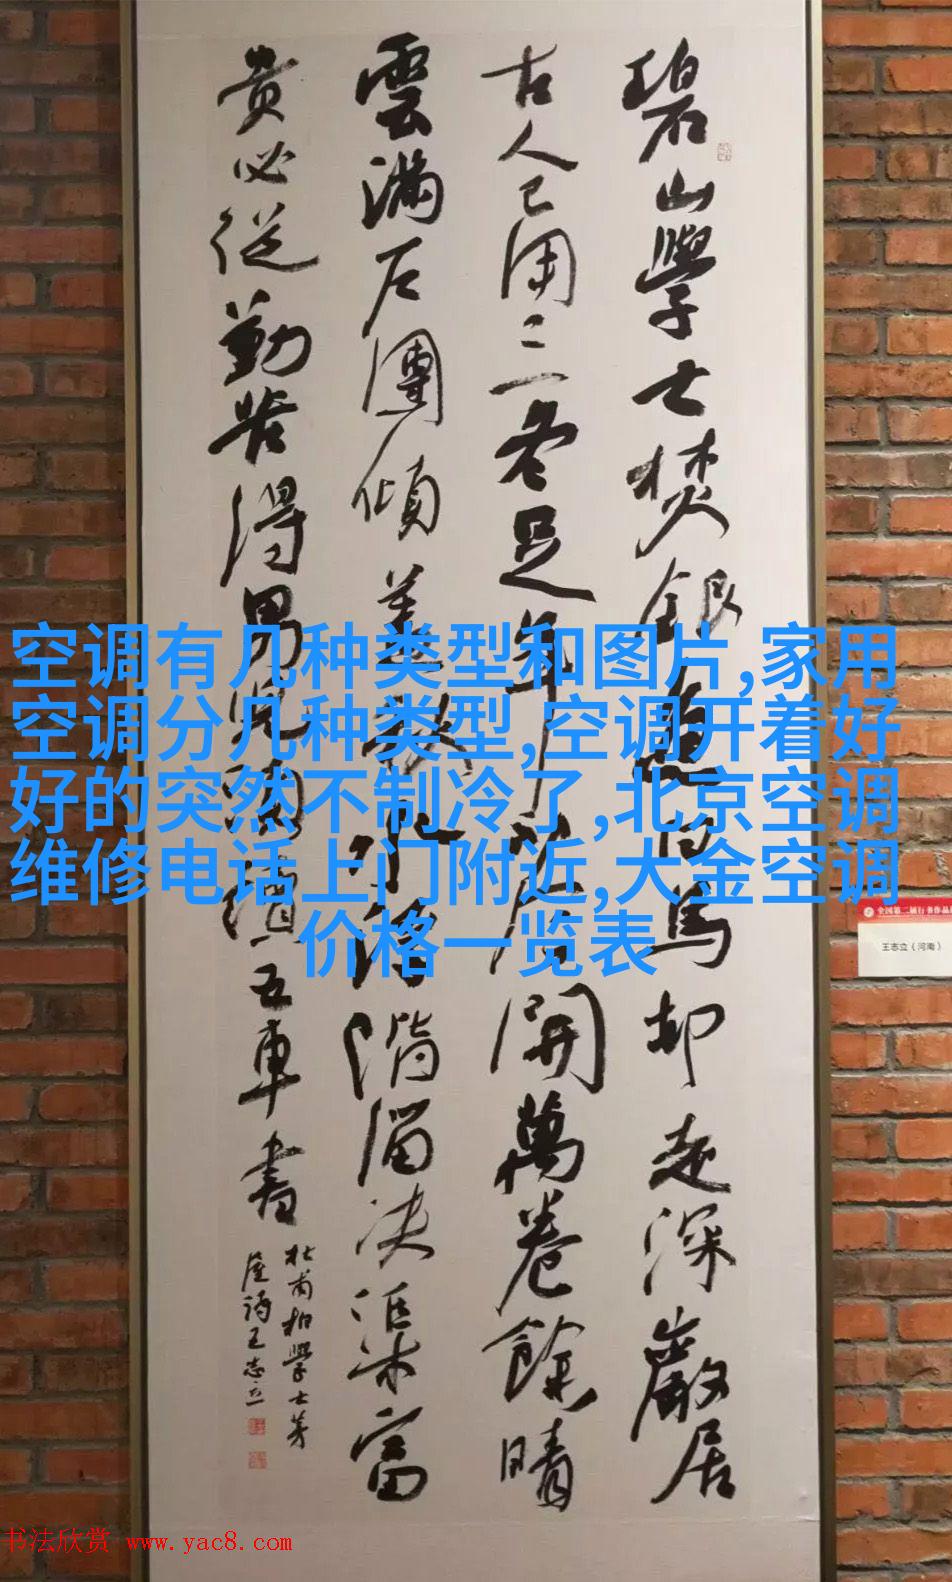 碧山學士焚銀魚白馬却走深巖居
古人已用三冬足年少今開萬卷餘晴
雲滿户團傾蓋秋水浮階溜决渠富
貴必從勤苦得男兒須讀五車書
杜甫柏學士茅
屋詩王志立
空调有几种类型和图片,家用
空调分几种类型,空调开着好
好的突然不制冷了,北京空调
维修电话上门附近,大金空调
价格一览表
全国第二届行书作品
王志立（河南）
书法欣赏 www.yac8.com